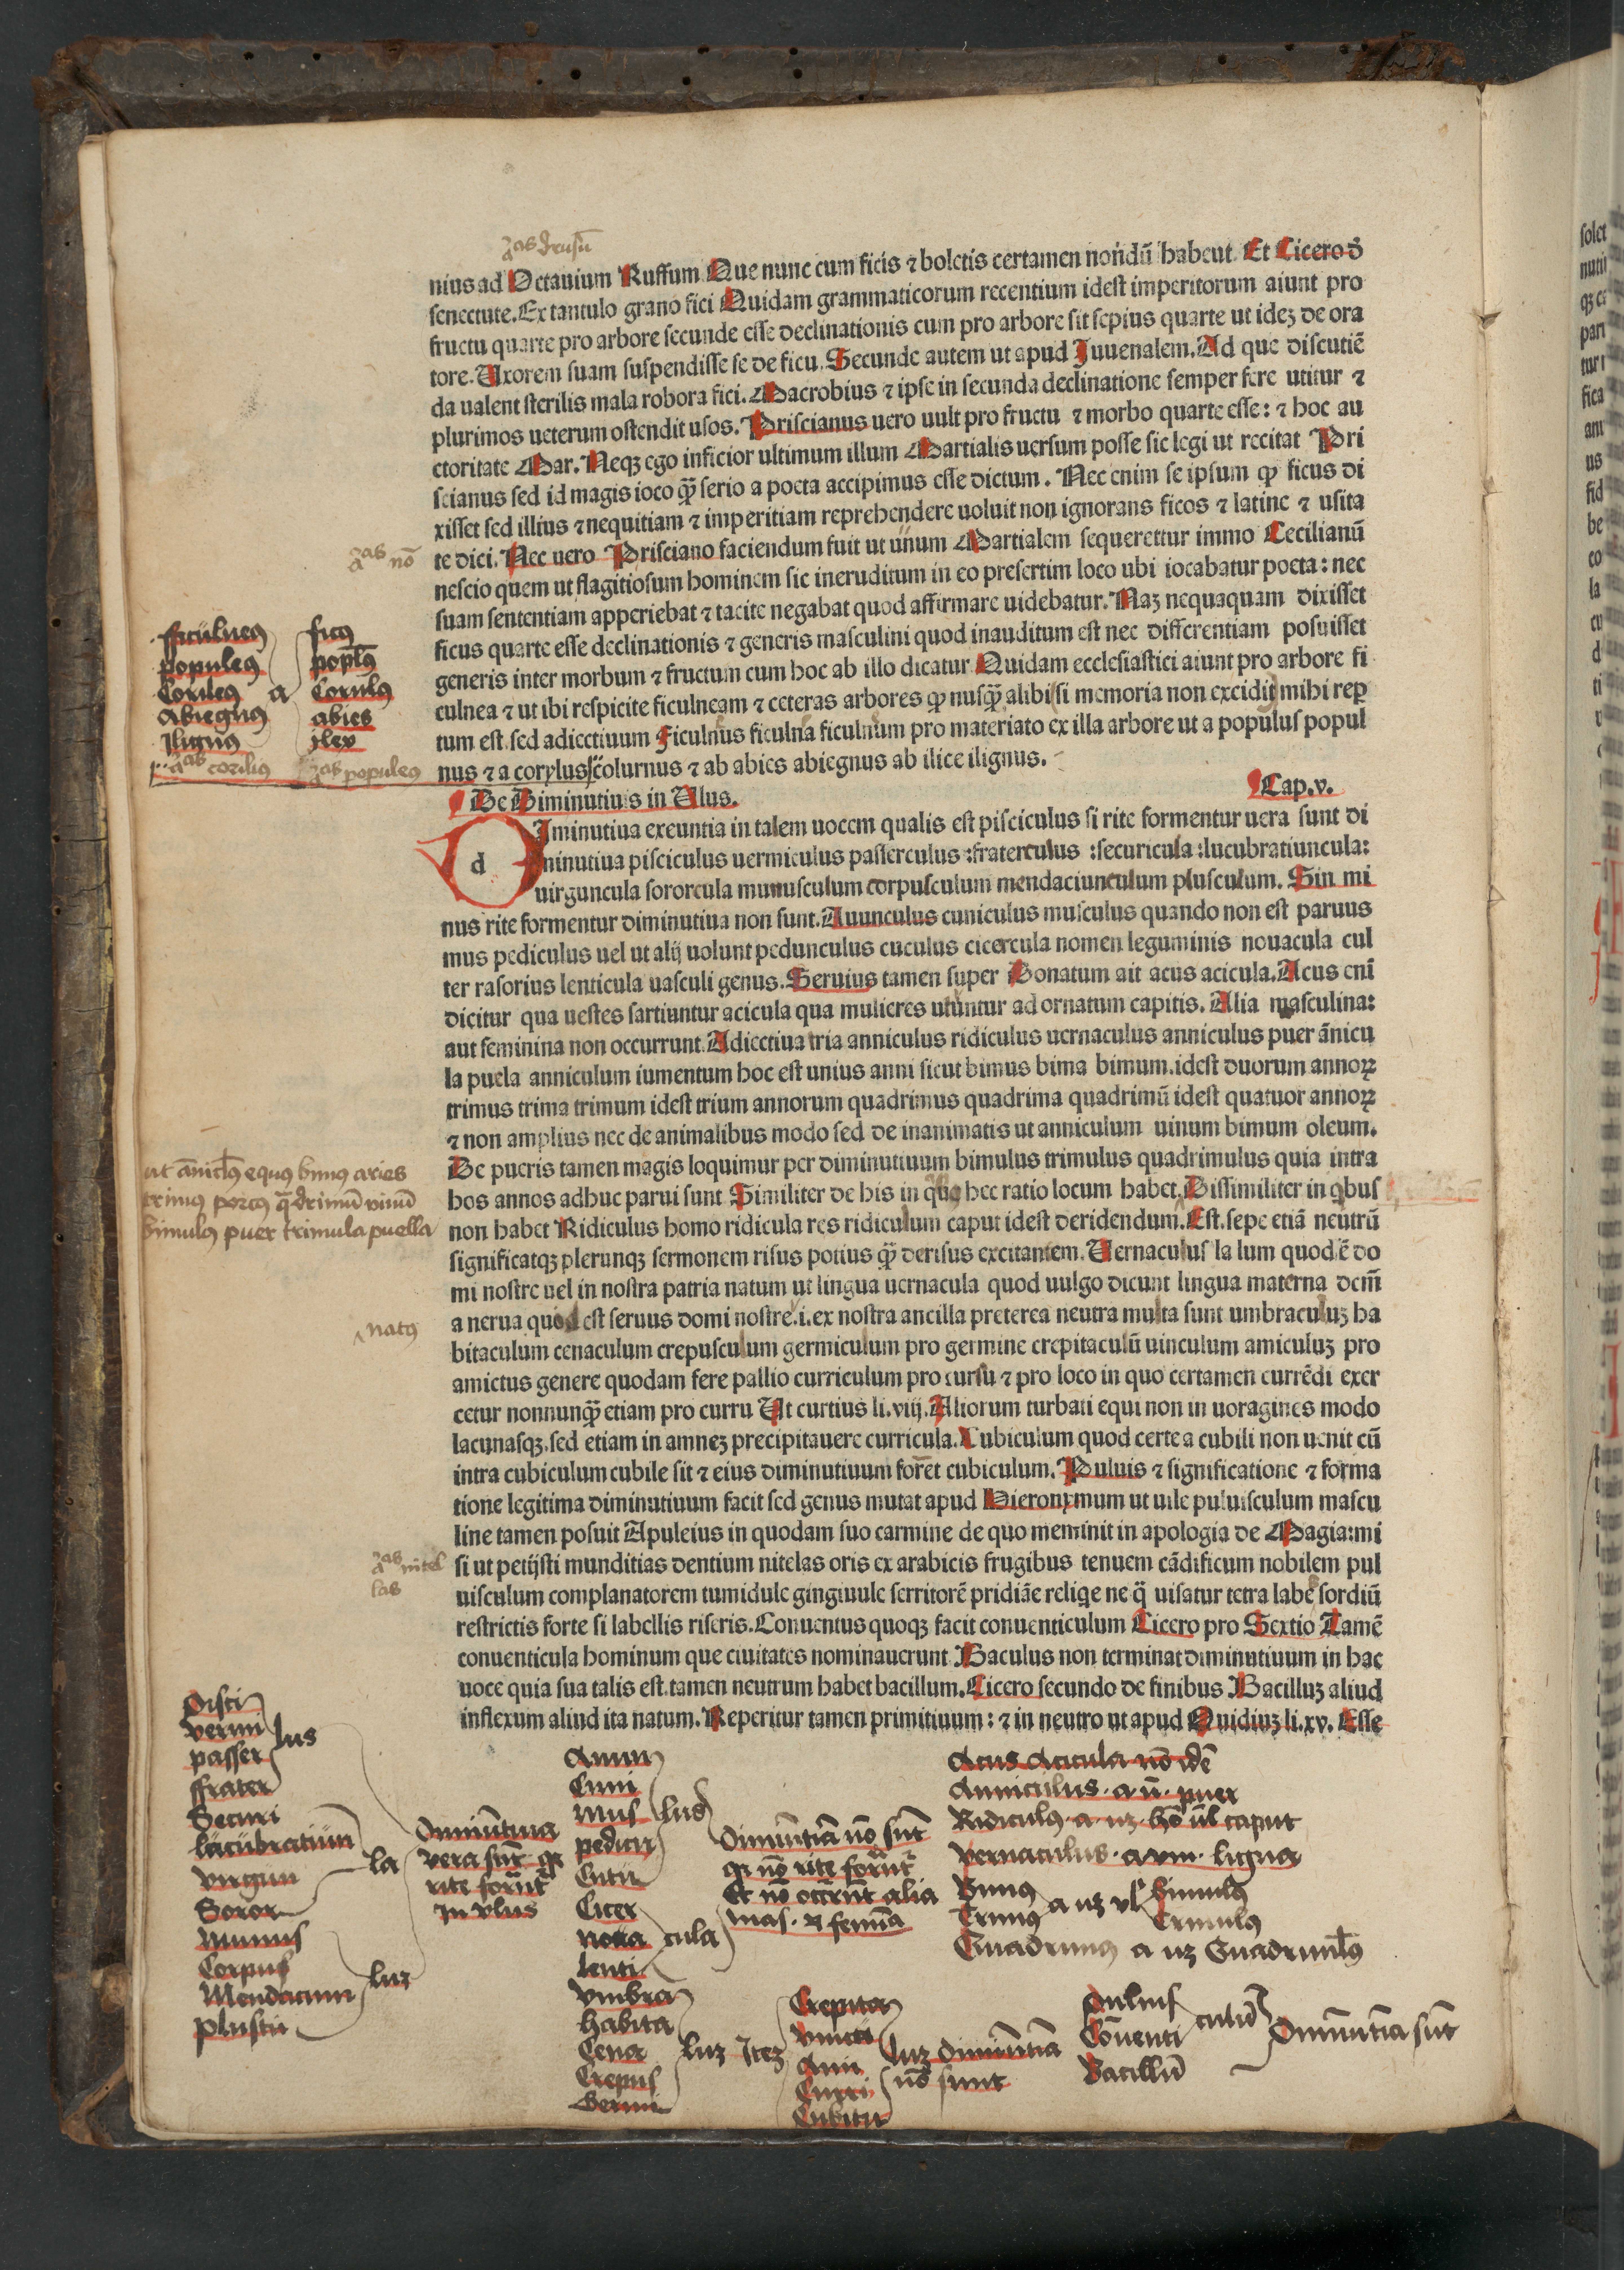 nius ad Octauium Ruffum Que nunc cum ficis ⁊ boletis certamen nondũ habent. Et Cicero
senectute. Ex tantulo grano fici Quidam grammaticorum recentium idest imperitorum aiunt pro
fructu quarte pro arbore secunde esse declinationis cum pro arbore sit sepius quarte ut idez de ora
tore. Uxorem suam suspendisse se de ficu. Secunde autem ut apud Juuenalem. Ad que discutiẽ
da ualent sterilis mala robora fici. Macrobius ⁊ ipse in secunda declinatione semper fere utitur ⁊
plurimos ueterum ostendit usos. Priscianus uero uult pro fructu ⁊ morbo quarte esse: ⁊ hoc au
ctoritate Mar. Neqz ego inficior ultimum illum Martialis uersum posse sic legi ut recitat Pri
scianus sed id magis ioco q̃ȝ serio a poeta accipimus esse dictum. Nec enim se ipsum ꝙ ficus di
xisset sed illius ⁊ nequitiam ⁊ imperitiam reprehendere uoluit non ignorans ficos ⁊ latine ⁊ usita
te dici. Nec uero Prisciano faciendum fuit ut unum Martialem sequerettur immo Cecilianũ
nescio quem ut flagitiosum hominem sic ineruditum in eo presertim loco ubi iocabatur poeta: nec
suam sententiam apperiebat ⁊ tacite negabat quod affirmare uidebatur. Naz nequaquam dixisset
ficus quarte esse declinationis ⁊ generis masculini quod inauditum est nec differentiam posuisset
generis inter morbum ⁊ fructum cum hoc ab illo dicatur Quidam ecclesiastici aiunt pro arbore fi
culnea ⁊ ut ibi respicite ficulneam ⁊ ceteras arbores ꝙ nusq̃ȝ alibi si memoria non excidit mihi reꝑ
tum est. sed adiectiuum Ficulnus ficulna ficulnum pro materiato ex illa arbore ut a populus popul
nus ⁊ a corylus colurnus ⁊ ab abies abiegnus ab ilice ilignus.
De Diminutiuis in Ulus. Cap. v.
d Iminutiua exeuntia in talem uocem qualis est pisciculus si rite formentur uera sunt di
minutiua pisciculus uermiculus passerculus :fraterculus :securicula :lucubratiuncula:
uirguncula sororcula munusculum corpusculum mendaciunculum plusculum. Sin mi
nus rite formentur diminutiua non sunt. Auunculus cuniculus musculus quando non est paruus
mus pediculus uel ut alij uolunt pedunculus cuculus cicercula nomen leguminis nouacula cul
ter rasorius lenticula uasculi genus. Seruius tamen super Donatum ait acus acicula. Acus enĩ
dicitur qua uestes sartiuntur acicula qua mulieres utuntur ad ornatum capitis. Alia masculina:
aut feminina non occurrunt. Adiectiua tria anniculus ridiculus uernaculus anniculus puer ãnicu
la puela anniculum iumentum hoc est unius anni sicut bimus bima bimum. idest duorum annoꝝ
trimus trima trimum idest trium annorum quadrimus quadrima quadrimũ idest quatuor annoꝝ
⁊ non amplius nec de animalibus modo sed de inanimatis ut anniculum uinum bimum oleum.
De pueris tamen magis loquimur per diminutiuum bimulus trimulus quadrimulus quia intra
hos annos adhuc parui sunt Similiter de his in quibus hec ratio locum habet. Dissimiliter in qbus
non habet Ridiculus homo ridicula res ridiculum caput idest deridendum. Est. sepe etiã neutrũ
significatqz plerunqz sermonem risus potius q̃ȝ derisus excitantem. Uernaculus la lum quod ẽ do
mi nostre uel in nostra patria natum ut lingua uernacula quod uulgo dicunt lingua materna dem̃
a nerua quod est seruus domi nostre. i. ex nostra ancilla preterea neutra multa sunt umbraculuz ha
bitaculum cenaculum crepusculum germiculum pro germine crepitaculũ uinculum amiculuz pro
amictus genere quodam fere pallio curriculum pro cursu ⁊ pro loco in quo certamen currẽdi exer
cetur nonnunq̃ȝ etiam pro curru Ut curtius li. viij. Aliorum turbati equi non in uoragines modo
lacunasqz. sed etiam in amnez precipitauere curricula. Cubiculum quod certe a cubili non uenit cũ
intra cubiculum cubile sit ⁊ eius diminutiuum foret cubiculum. Puluis ⁊ significatione ⁊ forma
tione legitima diminutiuum facit sed genus mutat apud Hieronymum ut uile puluisculum mascu
line tamen posuit Apuleius in quodam suo carmine de quo meminit in apologia de Magia: mi
si ut petijsti munditias dentium nitelas oris ex arabicis frugibus tenuem cãdificum nobilem pul
uisculum complanatorem tumidule gingiuule serritorẽ pridiãe reliqe ne q̃ uisatur tetra labe sordiũ
restrictis forte si labellis riseris. Conuentus quoqz facit conuenticulum Cicero pro Sextio Tamẽ
conuenticula hominum que ciuitates nominauerunt Baculus non terminat diminutiuum in hac
uoce quia sua talis est. tamen neutrum habet bacillum. Cicero secundo de finibus Bacilluz aliud
inflexum aliud ita natum. Reperitur tamen primitiuum: ⁊ in neutro ut apud Ouidiuz li. xv. Esse
nõ
fficulneus ficus
populeus popl̃us
Corileus a Corulus
Abiegnus abies
Jlignus jlex
corilius populeus
ut ãnicl̃us equus bimus aries
trimus porcus q̃drimũ vinũ
bimulus puer trimula puella
natus
nitel
las
Pisci
vermi
passer lus
ffrater
Securi
lucubratiun
virgun la
Soror
Munus
Corpus
Mendatiun luz
plus
Diminutiua
vera sunt
rite
in vlus
Auun
Cuni
Mus lus
pedicu
Cutu
Citer
Noua cula
lenti
Diminutia nõ sũt
nõ rite
Et nõ alia
mas. femina
Acus Acicula nõ idẽ
Anniculus. a. ũ. puer
Ridiculus. a. uz. caput
vernaculus. a. um. ligua
Bimus Bimulus
Trimus a uz Trimulus
Quadrimus a uz Quadrimulus
vmbra
habita
Cena luz Itez
Crepus
Germi
Crepita
vincu
Ami luz diminutia
Curri nõ sunt
Cubicu
Puluis
Conuenti culũ
Bacillũ
Diminutia sũt